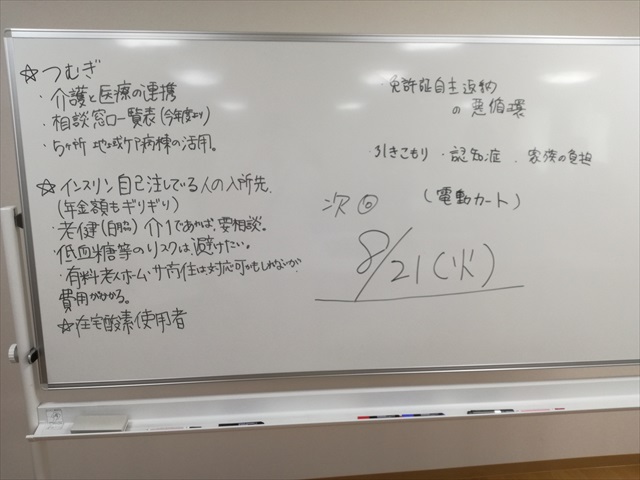 ☆つむぎ
・介護と医療の連携
・相談窓口一覧表(今年度より)
・5ヶ所 地域ケア病棟の活用。
☆インスリン自己注している人の入所先
(年金額もギリギリ)
・老健() 介1であれば、要相談。
低血糖等のリスクは避けたい。
・有料老人ホーム・サ高住は対応可かもしれないが、
費用がかかる。
☆在宅酸素使用者
・免許証自主返納
の悪循環
・引きこもり ・認知症 ・家族の負担
(電動カート)
次回
8/21(火)